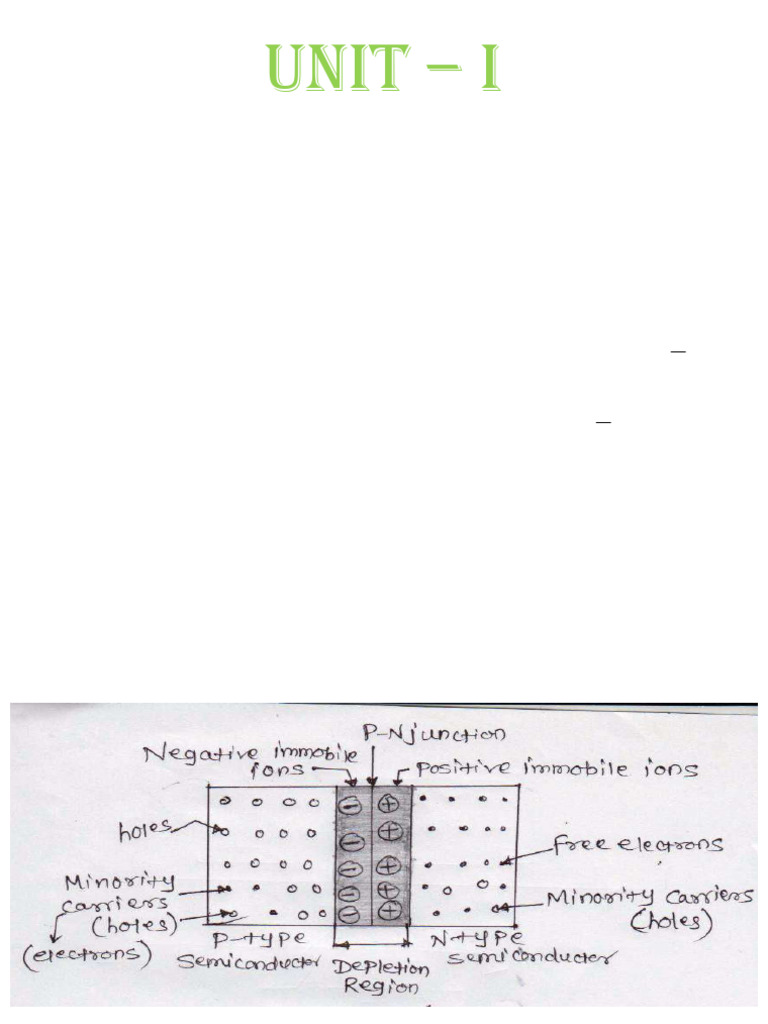 UNIT – I
P-N junction
Negative immobile
ions
positive immobile ions
holes
free electrons
Minority
carriers
(holes)
(electrons)
Minority carriers
(holes)
P-type
semiconductor
N-type
semiconductor
Depletion
Region